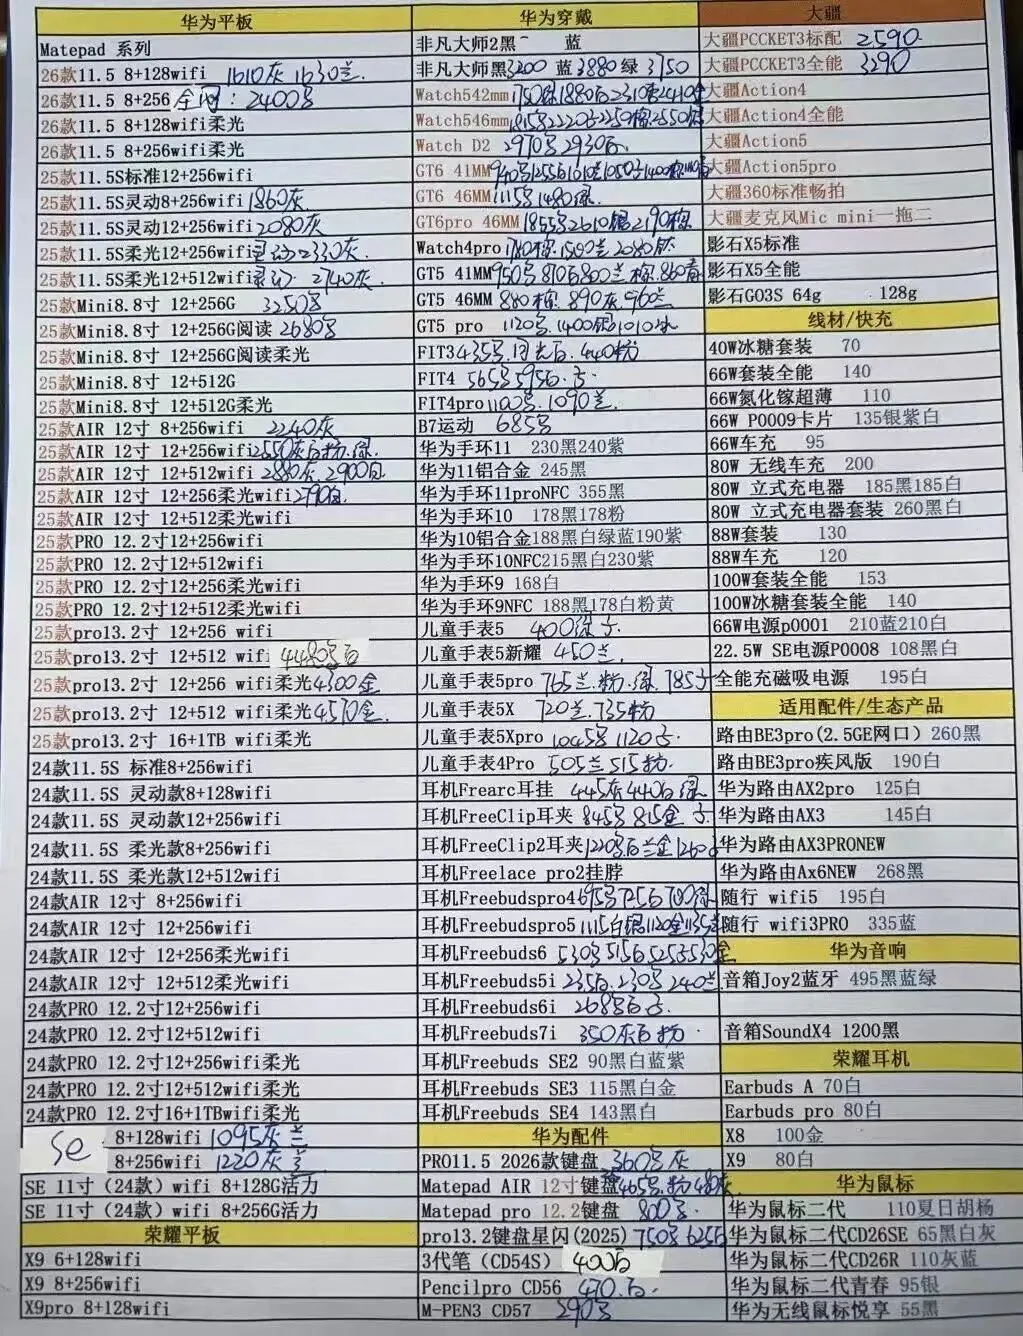 华为平板
Matepad 系列
26款11.5 8+128wifi 1610灰 1630兰.
26款11.5 8+256 全网: 2400
26款11.5 8+128wifi柔光
26款11.5 8+256wifi柔光
26款11.5S标准12+256wifi
26款11.5S灵动8+256wifi 1860灰
26款11.5S灵动12+256wifi 2080灰
25款11.5S柔光12+256wifi 灵动2330灰
25款11.5S柔光12+512wifi 2740灰
25款Mini8.8寸 12+256G 3250
25款Mini8.8寸 12+256G阅读 2680
25款Mini8.8寸 12+256G阅读柔光
25款Mini8.8寸 12+512G
25款Mini8.8寸 12+512G柔光
25款AIR 12寸 8+256wifi 2240灰
25款AIR 12寸 12+256wifi 2550灰白粉.绿
25款AIR 12寸 12+512wifi 2880灰. 2900白
25款AIR 12寸 12+256柔光wifi 2790白.
25款AIR 12寸 12+512柔光wifi
25款PRO 12.2寸12+256wifi
25款PRO 12.2寸12+512wifi
25款PRO 12.2寸12+256柔光wifi
25款PRO 12.2寸12+512柔光wifi
25款pro13.2寸 12+256 wifi
25款pro13.2寸 12+512 wifi 4480
25款pro13.2寸 12+256 wifi柔光4300金
25款pro13.2寸 12+512 wifi柔光4570金.
25款pro13.2寸 16+1TB wifi柔光
24款11.5S 标准8+256wifi
24款11.5S 灵动款8+128wifi
24款11.5S 灵动款12+256wifi
24款11.5S 柔光款8+256wifi
24款11.5S 柔光款12+512wifi
24款AIR 12寸 8+256wifi
24款AIR 12寸 12+256wifi
24款AIR 12寸 12+256柔光wifi
24款AIR 12寸 12+512柔光wifi
24款PRO 12.2寸12+256wifi
24款PRO 12.2寸12+512wifi
24款PRO 12.2寸12+256wifi柔光
24款PRO 12.2寸12+512wifi柔光
24款PRO 12.2寸16+1TBwifi柔光
Se 8+128wifi 1095灰 兰
8+256wifi 1220灰
SE 11寸（24款）wifi 8+128G活力
SE 11寸（24款）wifi 8+256G活力
荣耀平板
X9 6+128wifi
X9 8+256wifi
X9pro 8+128wifi
华为穿戴
非凡大师2黑 蓝
非凡大师黑3200 蓝3880绿 3150
Watch542mm
Watch546mm
Watch D2 2970 2930白.
GT6 41MM
GT6 46MM 1115 1480绿
GT6pro 46MM 1855 2610银2190棕
Watch4pro
GT5 41MM 950 810白800兰
GT5 46MM 880棕. 890灰 960兰
GT5 pro 1120. 1400银1010
FIT3 435
FIT4 565 595白.
FIT4pro1100. 1090兰.
B7运动 685
华为手环11 230黑240紫
华为11铝合金 245黑
华为手环11proNFC 355黑
华为手环10 178黑178粉
华为10铝合金188黑白绿蓝190紫
华为手环10NFC215黑白230紫
华为手环9 168白
华为手环9NFC 188黑178白粉黄
儿童手表5 400绿
儿童手表5新耀 450兰.
儿童手表5pro 765兰.粉.绿 785
儿童手表5X 720兰.735粉
儿童手表5Xpro 1045 1120
儿童手表4Pro 505兰515粉.
耳机Frearc耳挂 445灰440白 绿
耳机FreeClip耳夹 845 815金
耳机FreeClip2耳夹1220 白兰金1260
耳机Freelace pro2挂脖
耳机Freebudspro4 695 725白 700绿
耳机Freebudspro5 1115白银1120金1135
耳机Freebuds6 530 515白525
耳机Freebuds5i 235白.230 240兰
耳机Freebuds6i 268
耳机Freebuds7i 350灰白粉
耳机Freebuds SE2 90黑白蓝紫
耳机Freebuds SE3 115黑白金
耳机Freebuds SE4 143黑白
华为配件
PRO11.5 2026款键盘 360 灰
Matepad AIR 12寸键盘465.粉
Matepad pro 12.2键盘 800
pro13.2键盘星闪(2025) 750 625白
3代笔（CD54S） 400白
Pencilpro CD56 470.白.
M-PEN3 CD57 290
大疆
大疆PCCKET3标配 2590
大疆PCCKET3全能 3290
大疆Action4
大疆Action4全能
大疆Action5
大疆Action5pro
大疆360标准畅拍
大疆麦克风Mic mini一拖二
影石X5标准
影石X5全能
影石GO3S 64g 128g
线材/快充
40W冰糖套装 70
66W套装全能 140
66W氮化镓超薄 110
66W P0009卡片 135银紫白
66W车充 95
80W 无线车充 200
80W 立式充电器 185黑185白
80W 立式充电器套装 260黑白
88W套装 130
88W车充 120
100W套装全能 153
100W冰糖套装全能 140
66W电源p0001 210蓝210白
22.5W SE电源P0008 108黑白
全能充磁吸电源 195白
适用配件/生态产品
路由BE3pro(2.5GE网口) 260黑
路由BE3pro疾风版 190白
华为路由AX2pro 125白
华为路由AX3 145白
华为路由AX3PRONEW
华为路由Ax6NEW 268黑
随行 wifi5 195白
随行 wifi3PRO 335蓝
华为音响
音箱Joy2蓝牙 495黑蓝绿
音箱SoundX4 1200黑
荣耀耳机
Earbuds A 70白
Earbuds pro 80白
X8 100金
X9 80白
华为鼠标
华为鼠标二代 110夏日胡杨
华为鼠标二代CD26SE 65黑白灰
华为鼠标二代CD26R 110灰蓝
华为鼠标二代青春 95银
华为无线鼠标悦享 55黑